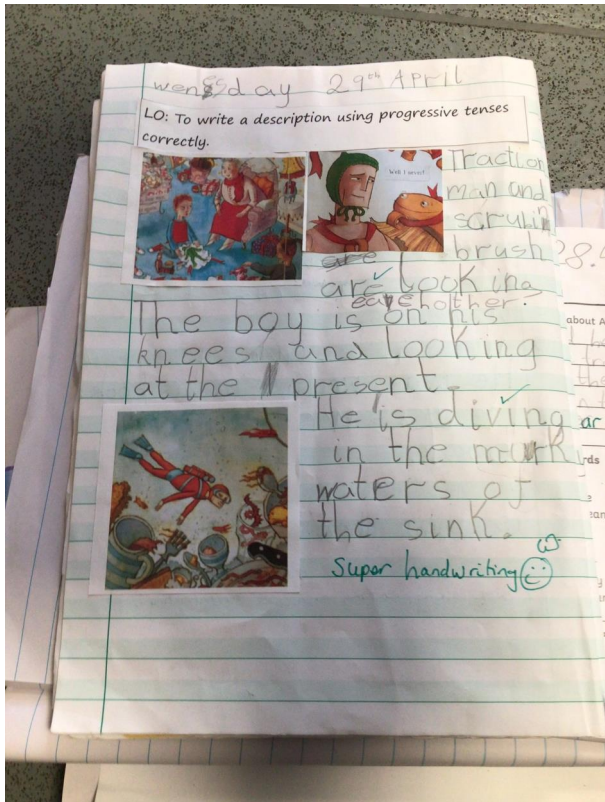 wenssday 29th APril
LO: To write a description using progressive tenses
correctly.
Well I never!
Traction
man and
scrubin
brush
are
are looking
eace hother.
The boy is on his
knees and looking
at the present.
He is diving
in the murk
waters of
the sink.
Super handwriting
28.
about A
ar
rds